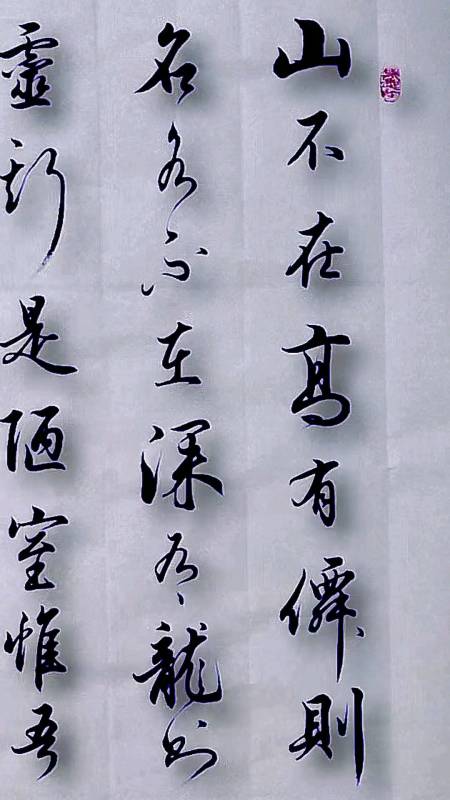 山不在高有僊則
名水不在深有龍則
靈斯是陋室惟吾